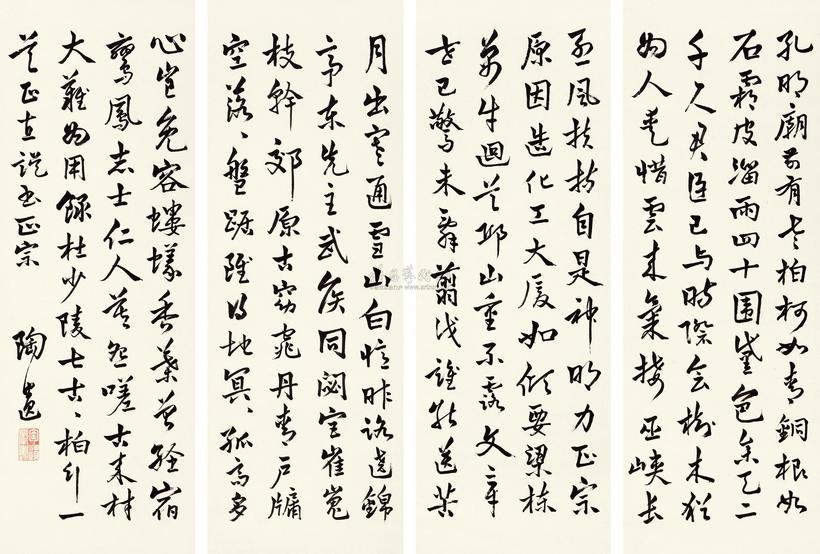 孔明廟前有老柏柯如青銅根如
石霜皮溜雨四十圍黛色參天二
千尺君臣已与時際会樹木猶
為人愛惜雲來氣接巫峽長
月出寒通雪山白憶昨路遶錦
亭東先主武侯同閟宮崔嵬
枝幹郊原古窈窕丹青戶牖
空落〻盤踞雖得地冥〻孤高多
烈風扶持自是神明力正宗
原因造化工大厦如傾要梁棟
萬牛迴首邱山重不露文章
世已驚未辭翦伐誰能送苦
心豈免容螻蟻香葉曾經宿
鸞鳳志士仁人莫怨嗟古來材
大難為用錄杜少陵七古〻柏行一
首正直誤書正宗 陶